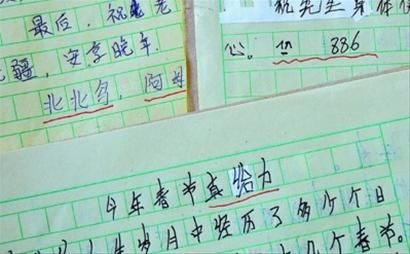 最后，祝
疆，安享晚年.
北北鸟，阿
先生身体
心。 886
今年春节真给力
岁月中经历了多少个日
几个春节。